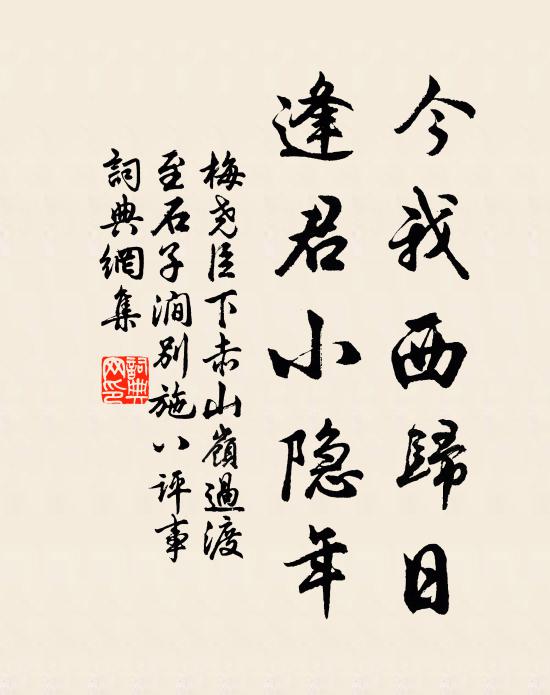 今我西歸日
逢君小隐年
梅尧臣下赤山嶺過渡
至石子澗别施八评事
詞典網集
詞典網印